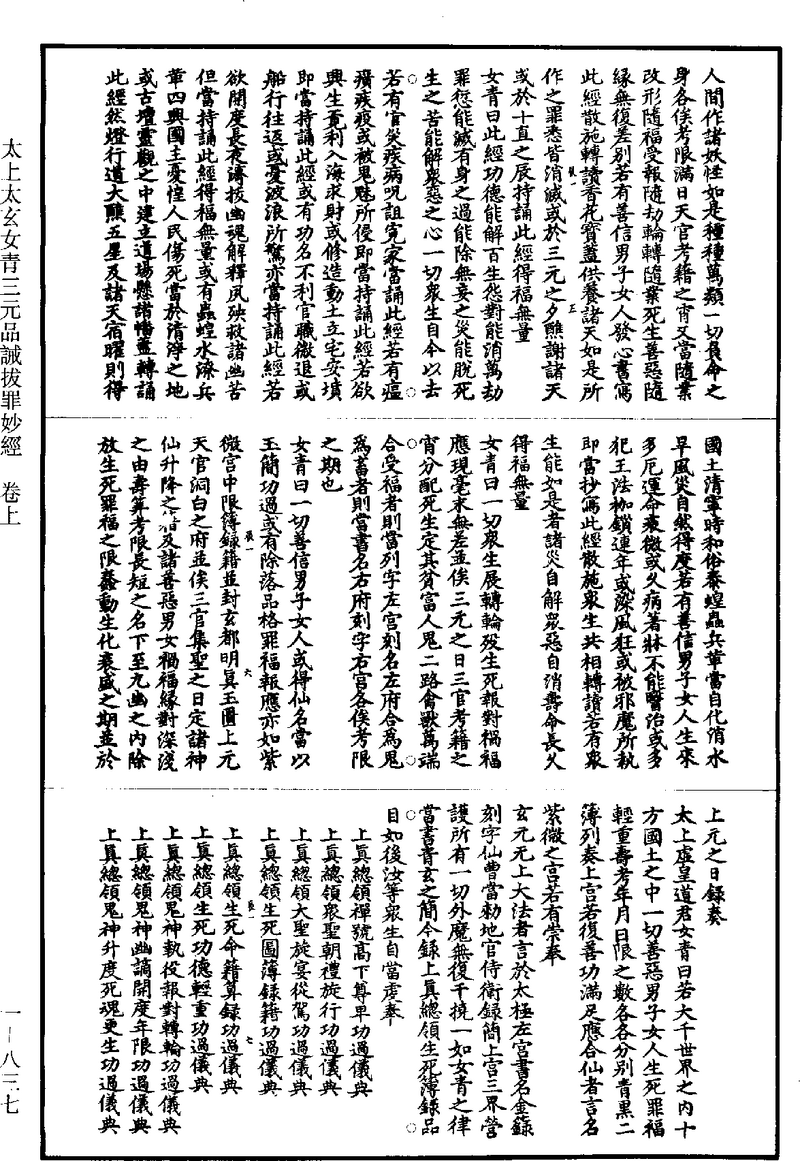 人間作諸妖怪如是種種萬類一切負命之
身各俟考限滿日天官考籍之宵又當隨業
改形隨福受報隨劫輪轉隨業死生善惡隨
緣無復差別若有善信男子女人發心書寫
此經散施轉讀香花寶蓋供養諸天如是所
作之罪悉皆消滅或於三元之夕醮謝諸天
或於十直之辰持誦此經得福無量
女青曰此經功德能解百生怨對能消萬劫
罪愆能滅有身之過能除無妄之災能脫死
生之苦能解衆惡之心一切衆生自今以去
若有官災疾病呪詛寃家當誦此經若有瘟
𤼣疾疫或被鬼魅所侵即當持誦此經若欲
興生覓利入海求財或修造動土立宅安墳
即當持誦此經或有功名不利官職微退或
船行往返或憂波浪所驚亦當持誦此經若
欲開度長夜濤拔幽魂解釋夙殃救諸幽苦
但當持誦此經得福無量或有蟲蝗水潦兵
革四興國主憂惶人民傷死當於清淨之地
或古壇靈觀之中建立道場懸諸幡蓋轉誦
此經然燈行道大醮五星及諸天宿曜則得
國土清寧時和俗泰蝗蟲兵革當自化消水
旱風災自然得度若有善信男子女人生來
多厄運命衰微或久病著牀不能醫治或多
犯王法枷鎖連年或染風狂或被邪魔所執
即當抄寫此經散施衆生共相轉讀若有衆
生能如是者諸災自解衆惡自消壽命長久
得福無量
女青曰一切衆生展轉輪沒生死報對禍福
應現毫末無差並俟三元之日三官考籍之
宵分配死生定其貧富人鬼二路禽獸萬端
合受福者則當列字左宮刻名左府合為鬼
為畜者則當書名右府刻字右宮各俟考限
之期也
女青曰一切善信男子女人或得仙名當以
玉簡功過或有除落品格罪福報應亦如紫
微宮中限簿錄籍並封玄都明真玉匱上元
天官洞白之府並俟三官集聖之日定諸神
仙升降之階及諸善惡男女禍福緣對深淺
之由壽筭考限長短之名下至九幽之內除
放生死罪福之限蠢動生化衰盛之期並於
上元之日錄奏
太上虛皇道君女青曰若大千世界之內十
方國土之中一切善惡男子女人生死罪福
輕重壽考年月日限之數各各分別青黑二
簿列奏上宮若復善功滿足應合仙者言名
紫微之宮若有崇奉
玄元无上大法者言於太極左宮書名金籙
刻字仙曹當勑地官侍衛錄簡上宮三界營
護所有一切外魔無復干撓一如女青之律
當書青玄之簡今錄上真總領生死簿錄品
目如後汝等衆生自當虔奉
上真總領禪號高下尊卑功過儀典
上真總領衆聖朝禮旋行功過儀典
上真總領大聖旋宴從駕功過儀典
上真總領生死圖簿錄籍功過儀典
上真總領生死命籍算錄功過儀典
上真總領生死功德輕重功過儀典
上真總領鬼神執役報對轉輪功過儀典
上真總領鬼神幽謫開度年限功過儀典
上真總領鬼神升度死魂更生功過儀典
太上太玄女青三元品誡拔罪妙經 卷上
一—八三七